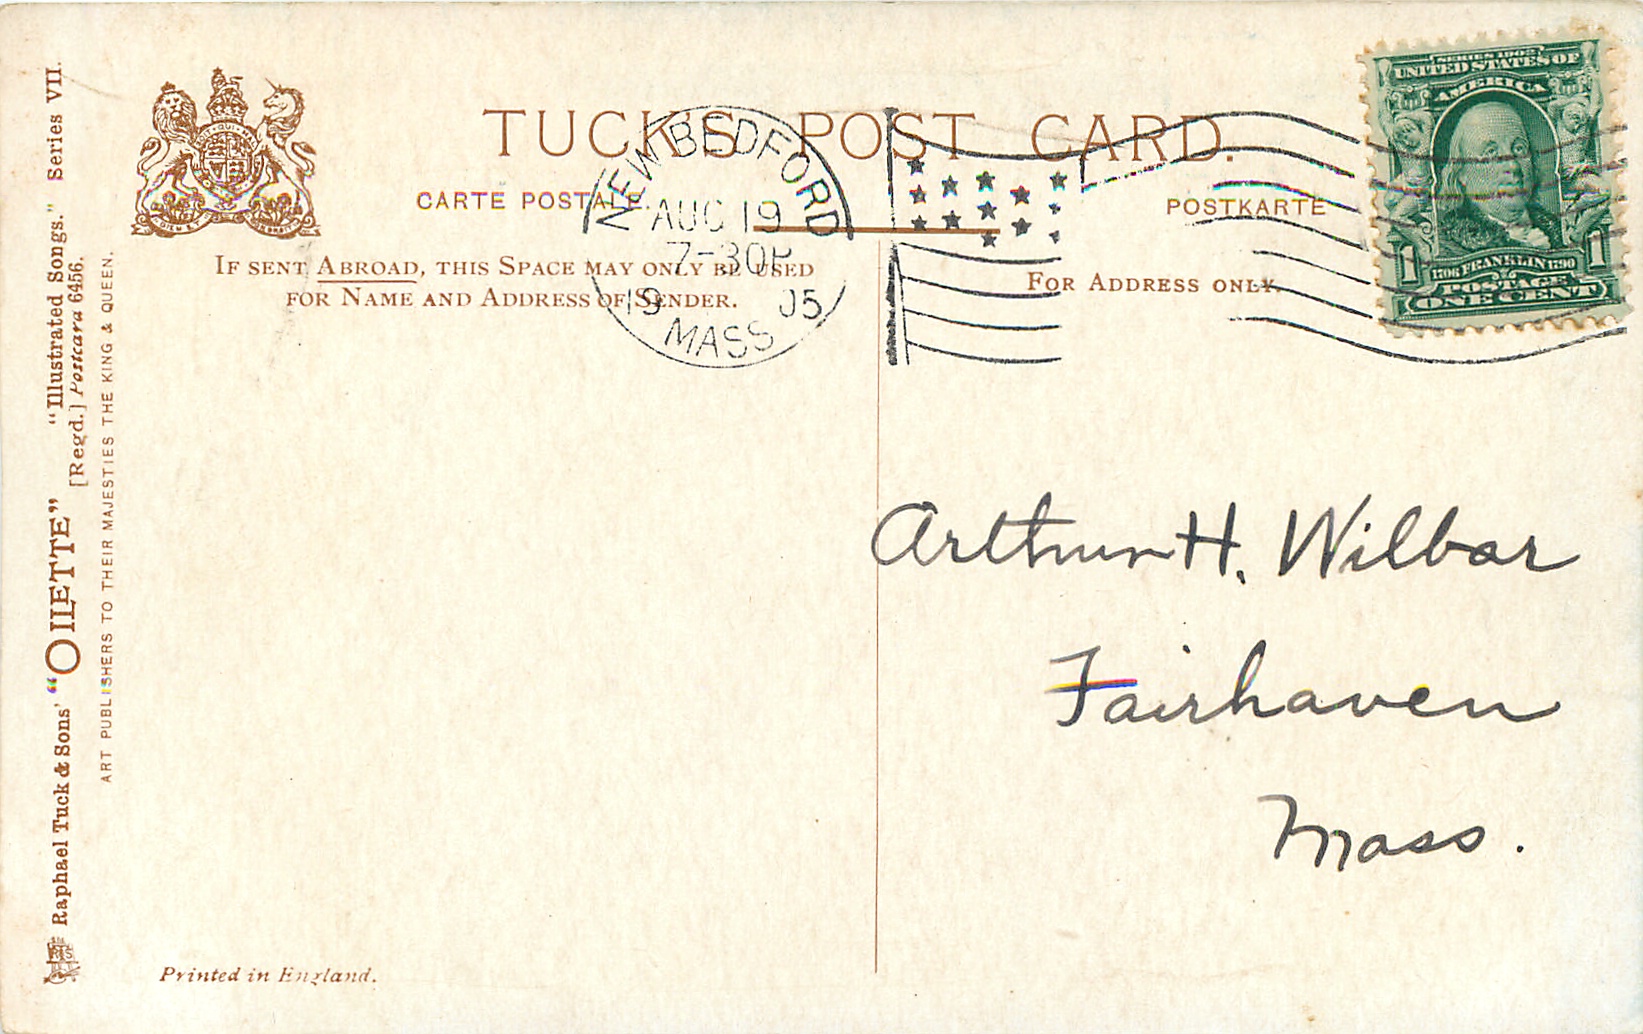 TUCK'S POST CARD.
CARTE POSTALE.
POSTKARTE
IF SENT ABROAD, THIS SPACE MAY ONLY BE USED
FOR NAME AND ADDRESS OF SENDER.
FOR ADDRESS ONLY.
NEW BEDFORD
AUG 19
7-30P
19 05
MASS
SERIES 1902
UNITED STATES OF
AMERICA
1706 FRANKLIN 1790
1 1
POSTAGE
ONE CENT
Arthur H. Wilbar
Fairhaven
Mass.
Raphael Tuck & Sons' "OILETTE" "Illustrated Songs." Series VII.
[Regd.] Postcard 6456.
ART PUBLISHERS TO THEIR MAJESTIES THE KING & QUEEN.
Printed in England.